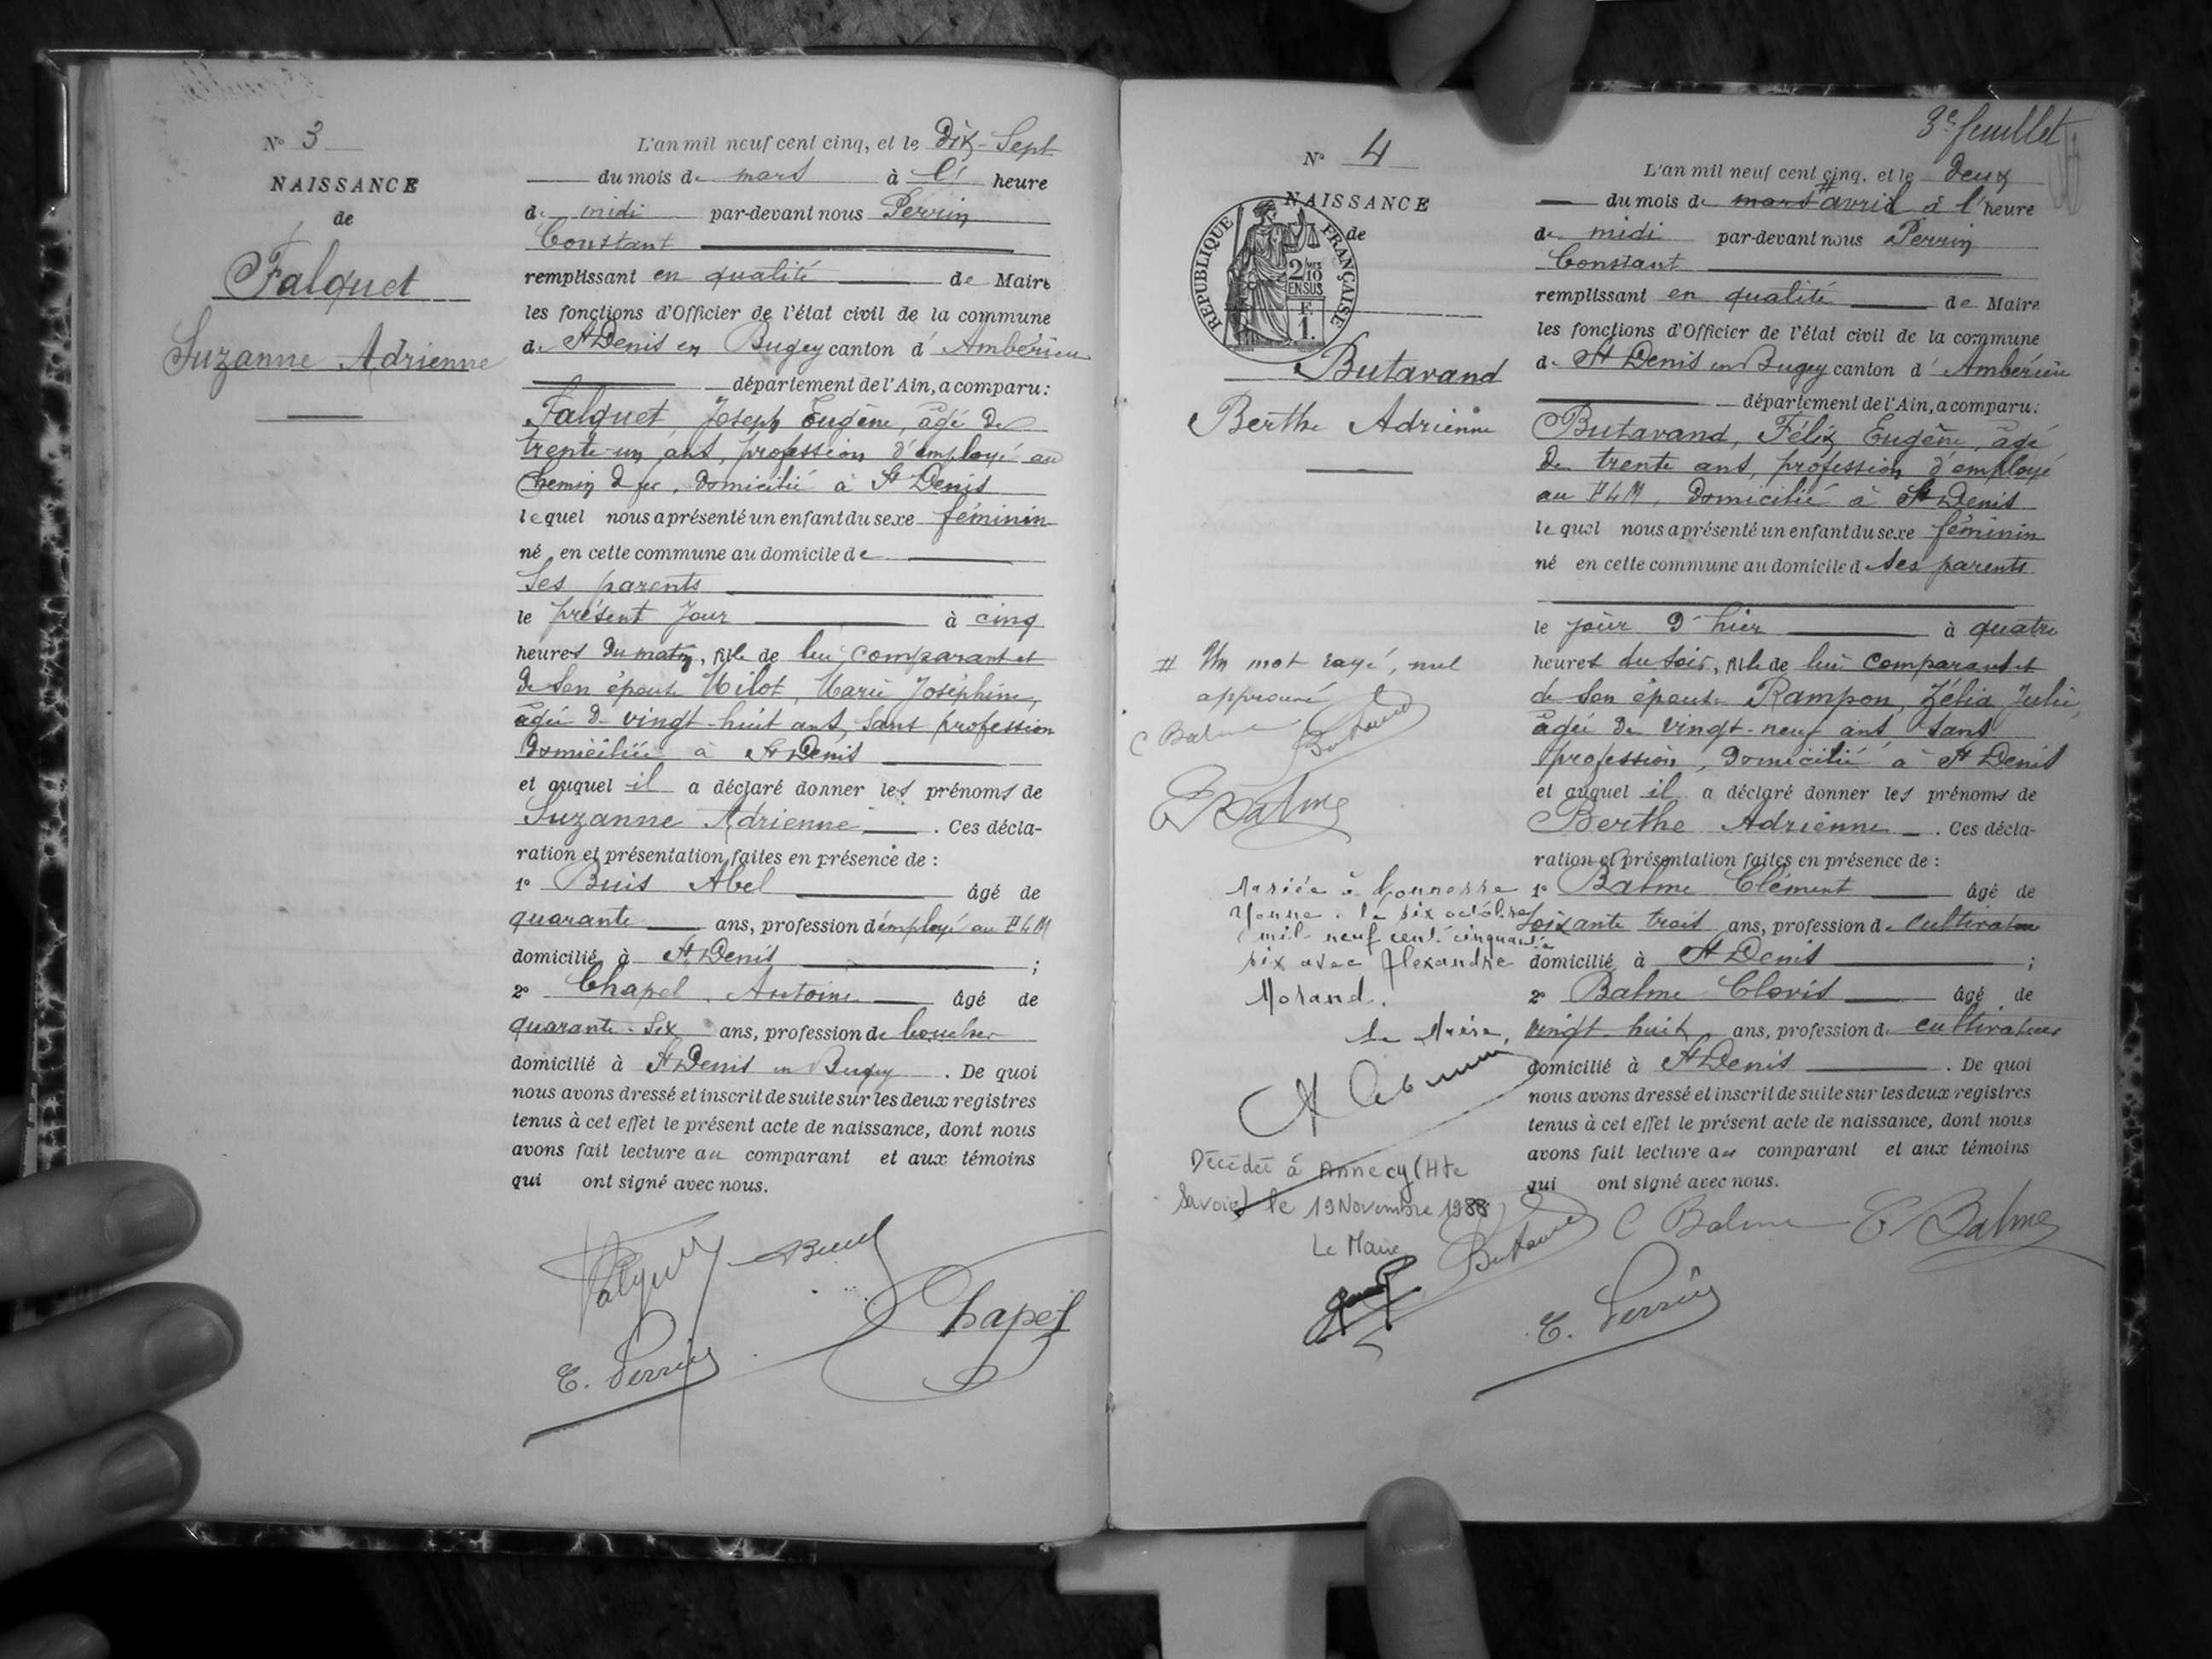 N° 3
NAISSANCE
de
Falquet
Suzanne Adrienne
L'an mil neuf cent cinq, et le Dix-Sept
du mois de mars à l' heure
de midi par-devant nous Perrin
Constant
remplissant en qualité de Maire
les fonctions d'Officier de l'état civil de la commune
de St Denis en Bugey canton d'Ambérieu
département de l'Ain, a comparu:
Falquet, Joseph Eugène, âgé de
trente-un ans, profession d'employé au
Chemin de fer, domicilié à St Denis
lequel nous a présenté un enfant du sexe féminin
né en cette commune au domicile de
ses parents
le présent jour à cinq
heures du matin, fille de lui comparant et
de son épouse Milot, Marie Joséphine,
âgée de vingt-huit ans, sans profession
domiciliée à St Denis
et auquel il a déclaré donner les prénoms de
Suzanne Adrienne. Ces décla-
ration et présentation faites en présence de :
1° Buis Abel âgé de
quarante ans, profession d'employé au PLM
domicilié à St Denis ;
2° Chapel, Antoine âgé de
quarante-six ans, profession de boucher
domicilié à St Denis en Bugey. De quoi
nous avons dressé et inscrit de suite sur les deux registres
tenus à cet effet le présent acte de naissance, dont nous
avons fait lecture au comparant et aux témoins
qui ont signé avec nous.
Falquet Buis
Chapel
C. Perrin
3e feuillet
N° 4
NAISSANCE
de
REPUBLIQUE FRANÇAISE
2/10
EN SUS
F.
1.
Butavand
Berthe Adrienne
# Un mot rayé, nul
approuvé
C Balme Butavand
C Balme
Mariée à
Yonne. le six octobre
mil neuf cent cinquante
six avec Alexandre
Morand.
Le Maire,
Décédée à Annecy (Hte
Savoie) le 19 Novembre 1988
Le Maire
L'an mil neuf cent cinq, et le deux
du mois de mars # avril à l'heure
de midi par-devant nous Perrin
Constant
remplissant en qualité de Maire
les fonctions d'Officier de l'état civil de la commune
de St Denis en Bugey canton d'Ambérieu
département de l'Ain, a comparu:
Butavand, Félix Eugène, âgé
de trente ans, profession d'employé
au PLM, domicilié à St Denis
lequel nous a présenté un enfant du sexe féminin
né en cette commune au domicile de ses parents
le jour d'hier à quatre
heures du soir, fille de lui comparant et
de son épouse Rampon, Zélia Julie,
âgée de vingt-neuf ans sans
profession, domicilié à St Denis
et auquel il a déclaré donner les prénoms de
Berthe Adrienne. Ces décla-
ration et présentation faites en présence de :
1° Balme Clément âgé de
soixante trois ans, profession de cultivateur
domicilié à St Denis ;
2° Balme Clovis âgé de
vingt huit ans, profession de cultivateur
domicilié à St Denis. De quoi
nous avons dressé et inscrit de suite sur les deux registres
tenus à cet effet le présent acte de naissance, dont nous
avons fait lecture au comparant et aux témoins
qui ont signé avec nous.
Butavand C Balme C Balme
C. Perrin